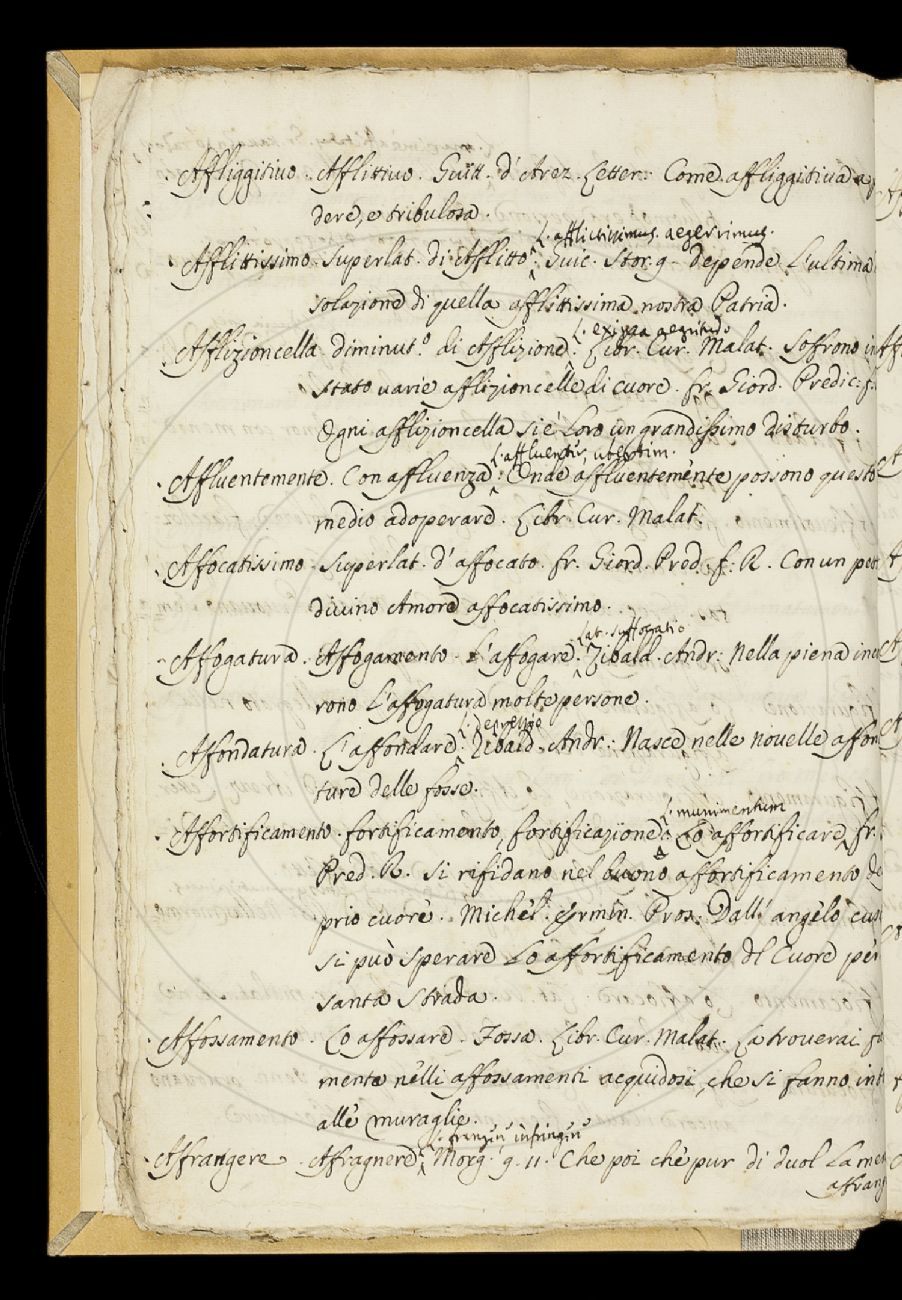 Affliggitivo · Afflittivo · Guitt. d'Arez. Letter: Come affliggitiva
dere, e tribulosa.
L. afflictissimus. aegerrimus.
Afflittissimo · Superlat. di Afflitto. Guic. Stor. 9. Depende L'ultima
solazione di quella afflittissima nostra Patria.
L. exigua aegritudo
Afflizioncella diminut.o di Afflizione. Libr. Cur. Malat. Soffrono in
stato varie afflizioncelle di cuore. fr. Giord. Predic:
Ogni afflizioncella si è Loro un grandissimo disturbo.
L. affluenter, ubertim.
Affluentemente. Con affluenza. Onde affluentemente possono questo
medio adoperare. Libr. Cur. Malat.
Affocatissimo · Superlat. d'affocato. fr. Giord. Pred. f: R. Con un pet
divino Amore affocatissimo.
Lat. suffocatio
Affogatura. Affogamento. L'affogare. Zibald. Andr: Nella piena
rono L'affogatura molte persone.
L. depressio
Affondatura. L'affondare. Zibald. Andr: Nasce nelle novelle affon
ture delle fosse.
L. munimentum
Affortificamento. fortificamento, fortificazione. Lo affortificare. fr.
Pred. R. Si rifidano nel buono affortificamento
prio cuore. Michel. Pros: Dall'angelo cus
si può sperare Lo affortificamento del Cuore per
santa strada.
Affossamento. Lo affossare. Fossa. Libr. Cur. Malat. La troverai
mente nelli affossamenti acquidosi, che si fanno int
alle muraglie.
L. frangere infringere
Affrangere Affragnere. Morg. 9. 11. Che poi che pur di duol La
affrang